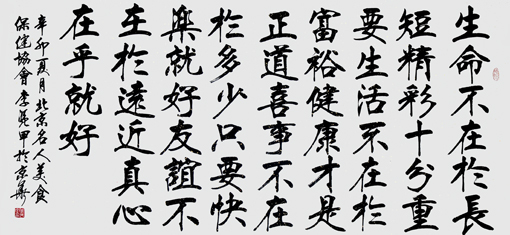 生命不在於長
短精彩十分重
要生活不在於
富裕健康才是
正道喜事不在
於多少只要快
樂就好友誼不
在於遠近真心
在乎就好
辛卯夏月北京名人美食
保健協會李英甲於京華